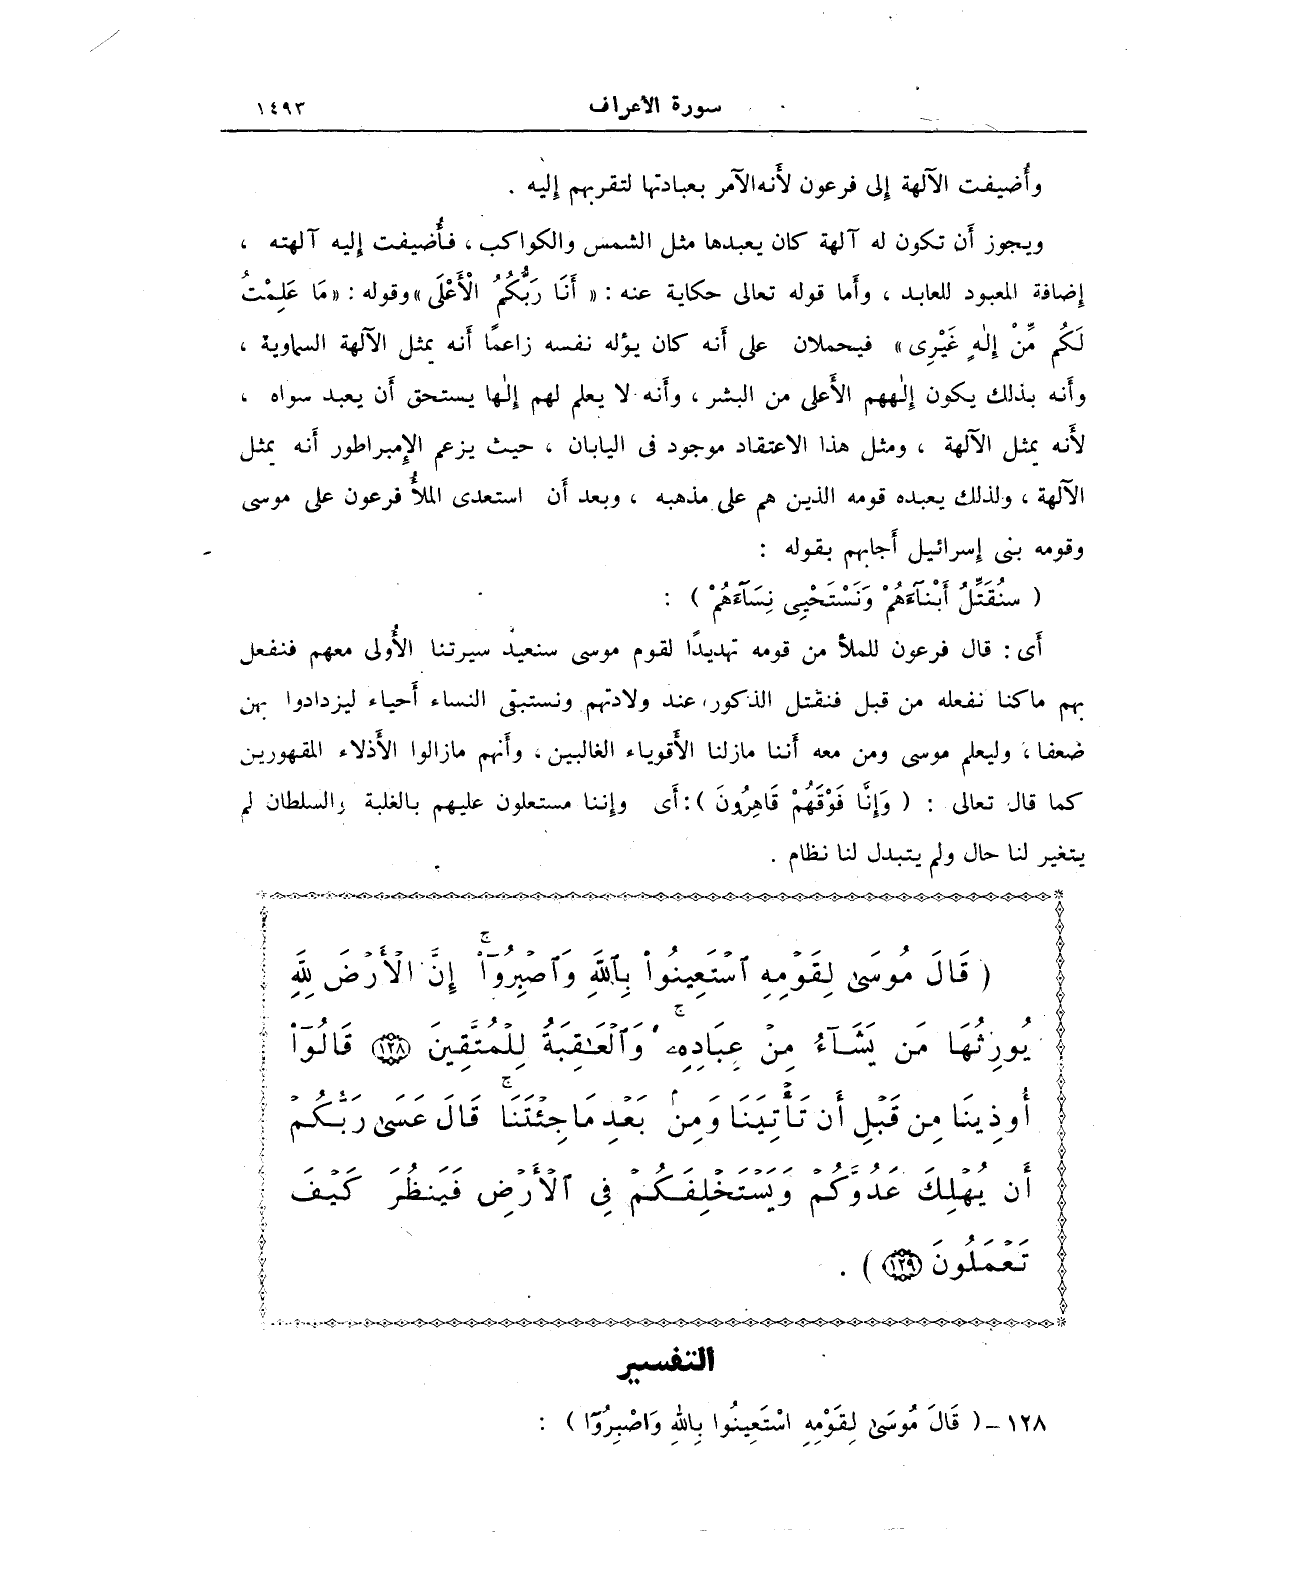 سورة الأعراف ١٤٩٣
وأُضيفت الآلهة إلى فرعون لأَنه الآمر بعبادتها لتقربهم إليه .
ويجوز أَن تكون له آلهة كان يعبدها مثل الشمس والكواكب ، فأُضيفت إليه آلهته ،
إضافة المعبود للعابد ، وأَما قوله تعالى حكاية عنه : « أَنَا رَبُّكُمُ الْأَعْلَى » وقوله : « مَا عَلِمْتُ
لَكُم مِّنْ إِلٰهٍ غَيْرِى » فيحملان على أَنه كان يؤله نفسه زاعمًا أَنه يمثل الآلهة السماوية ،
وأَنه بذلك يكون إلٰههم الأَعلى من البشر ، وأَنه لا يعلم لهم إلٰها يستحق أَن يعبد سواه ،
لأَنه يمثل الآلهة ، ومثل هذا الاعتقاد موجود فى اليابان ، حيث يزعم الإمبراطور أَنه يمثل
الآلهة ، ولذلك يعبده قومه الذين هم على مذهبه ، وبعد أَن استعدى الملأُ فرعون على موسى
وقومه بنى إسرائيل أَجابهم بقوله :
( سَنُقَتِّلُ أَبْنَآءَهُمْ وَنَسْتَحْيِى نِسَآءَهُمْ ) :
أَى : قال فرعون للملأ من قومه تهديدًا لقوم موسى سنعيد سيرتنا الأُولى معهم فنفعل
بهم ماكنا نفعله من قبل فنقتل الذكور ، عند ولادتهم ونستبقى النساء أَحياء ليزدادوا بهن
ضعفا ، وليعلم موسى ومن معه أَننا مازلنا الأَقوياء الغالبين ، وأَنهم مازالوا الأَذلاء المقهورين
كما قال تعالى : ( وَإِنَّا فَوْقَهُمْ قَاهِرُونَ ) : أَى وإننا مستعلون عليهم بالغلبة والسلطان لم
يتغير لنا حال ولم يتبدل لنا نظام .
( قَالَ مُوسَىٰ لِقَوْمِهِ ٱسْتَعِينُوا۟ بِٱللَّهِ وَٱصْبِرُوٓا۟ ۖ إِنَّ الْأَرْضَ لِلَّهِ
يُورِثُهَا مَن يَشَآءُ مِنْ عِبَادِهِۦ ۖ وَٱلْعَـٰقِبَةُ لِلْمُتَّقِينَ ﴿١٢٨﴾ قَالُوٓا۟
أُوذِينَا مِن قَبْلِ أَن تَأْتِيَنَا وَمِنۢ بَعْدِ مَا جِئْتَنَا ۚ قَالَ عَسَىٰ رَبُّكُمْ
أَن يُهْلِكَ عَدُوَّكُمْ وَيَسْتَخْلِفَكُمْ فِى ٱلْأَرْضِ فَيَنظُرَ كَيْفَ
تَعْمَلُونَ ﴿١٢٩﴾ ) .
التفسير
١٢٨ - ( قَالَ مُوسَىٰ لِقَوْمِهِ اسْتَعِينُوا بِاللهِ وَاصْبِرُوٓا ) :